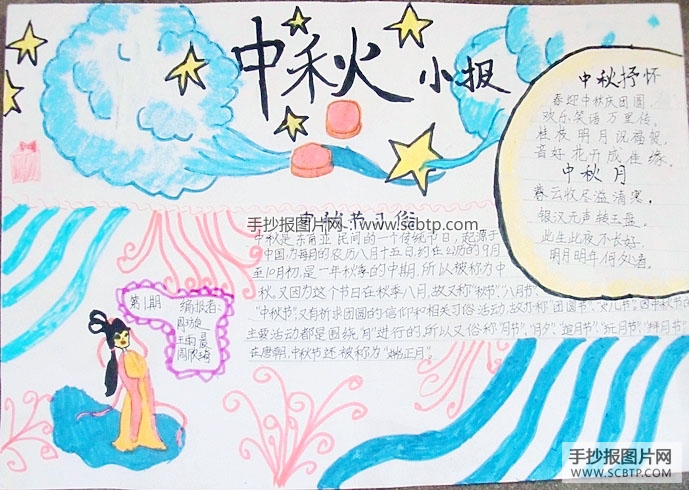 中秋小报
中秋抒怀
喜迎中秋庆团圆,
欢乐笑语万里传。
明月祝福
好花开成佳缘。
中秋月
暮云收尽溢清寒,
银汉无声转玉盘。
此生此夜不长好,
明月明年何处看。
手抄报图片网:www.scbtp.com
中秋节习俗
中秋是东南亚民间的一个传统节日,起源于
中国,为每月的农历八月十五日,约在公历的9月
至10月初,是一年秋季的中期,所以被称为中
秋,又因为这个节日在秋季八月,故又称"秋节""八月节"
"中秋节",又有祈求团圆的信仰和相关习俗活动,故亦称"团圆节""女儿节"。因中秋节的
主要活动都是围绕"月"进行的,所以又俗称"月节""月夕""追月节""玩月节""拜月节"
在唐朝,中秋节还被称为"端正月"。
第1期
编报者:
王雨晨
手抄报图片网
WWW.SCBTP.COM